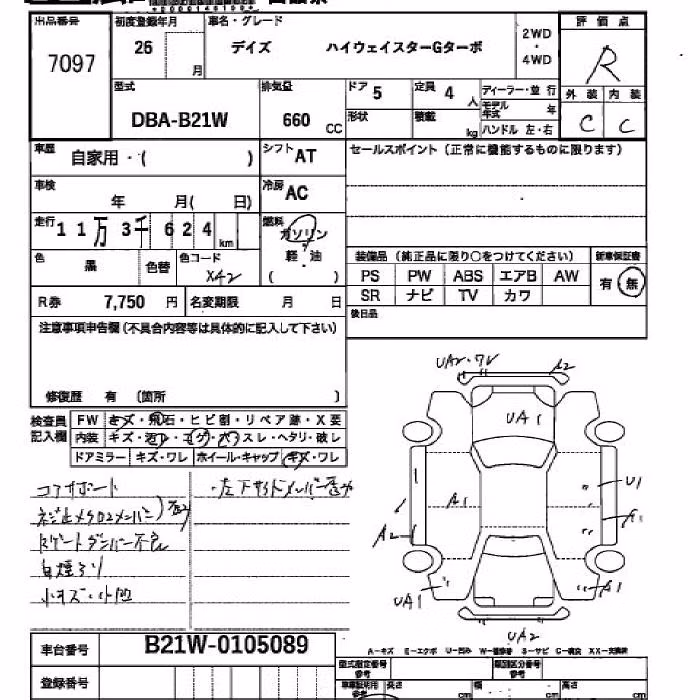 出品番号 初度登録年月 車名・グレード 2WD・4WD 評価点
7097 26 月 デイズ ハイウェイスターGターボ R
型式 排気量 ドア 5 定員 4 人 ディーラー・並行 外装 内装
DBA-B21W 660 CC 形状 積載 kg モデル年式 年 C C
ハンドル 左・右
車歴 自家用・( ) シフト AT セールスポイント(正常に機能するものに限ります)
車検 年 月( 日) 冷房 AC
走行 11万3千624km 燃料 ガソリン
軽・油
( )
色 黒 色替 色コード X42
装備品 (純正品に限り○をつけてください) 新車保証書
PS PW ABS エアB AW 有・無
SR ナビ TV カワ
R券 7,750 円 名変期限 月 日
後日品
注意事項申告欄(不具合内容等は具体的に記入して下さい)
修復歴 有 (箇所 )
検査員記入欄
FW キズ・飛石・ヒビ割・リペア跡・X要
内装 キズ・汚レ・コゲ・穴・スレ・ヘタリ・破レ
ドアミラー キズ・ワレ ホイール・キャップ キズ・ワレ
コアサポート
小キズ・小凹
UA2・7V A2
UA1
A1
U1
A2
UA1
A1
UA2
A-キズ E-エクボ U-凹み
車台番号 B21W-0105089
登録番号
型式指定番号 類別区分番号
長さ cm 幅 cm 高さ cm